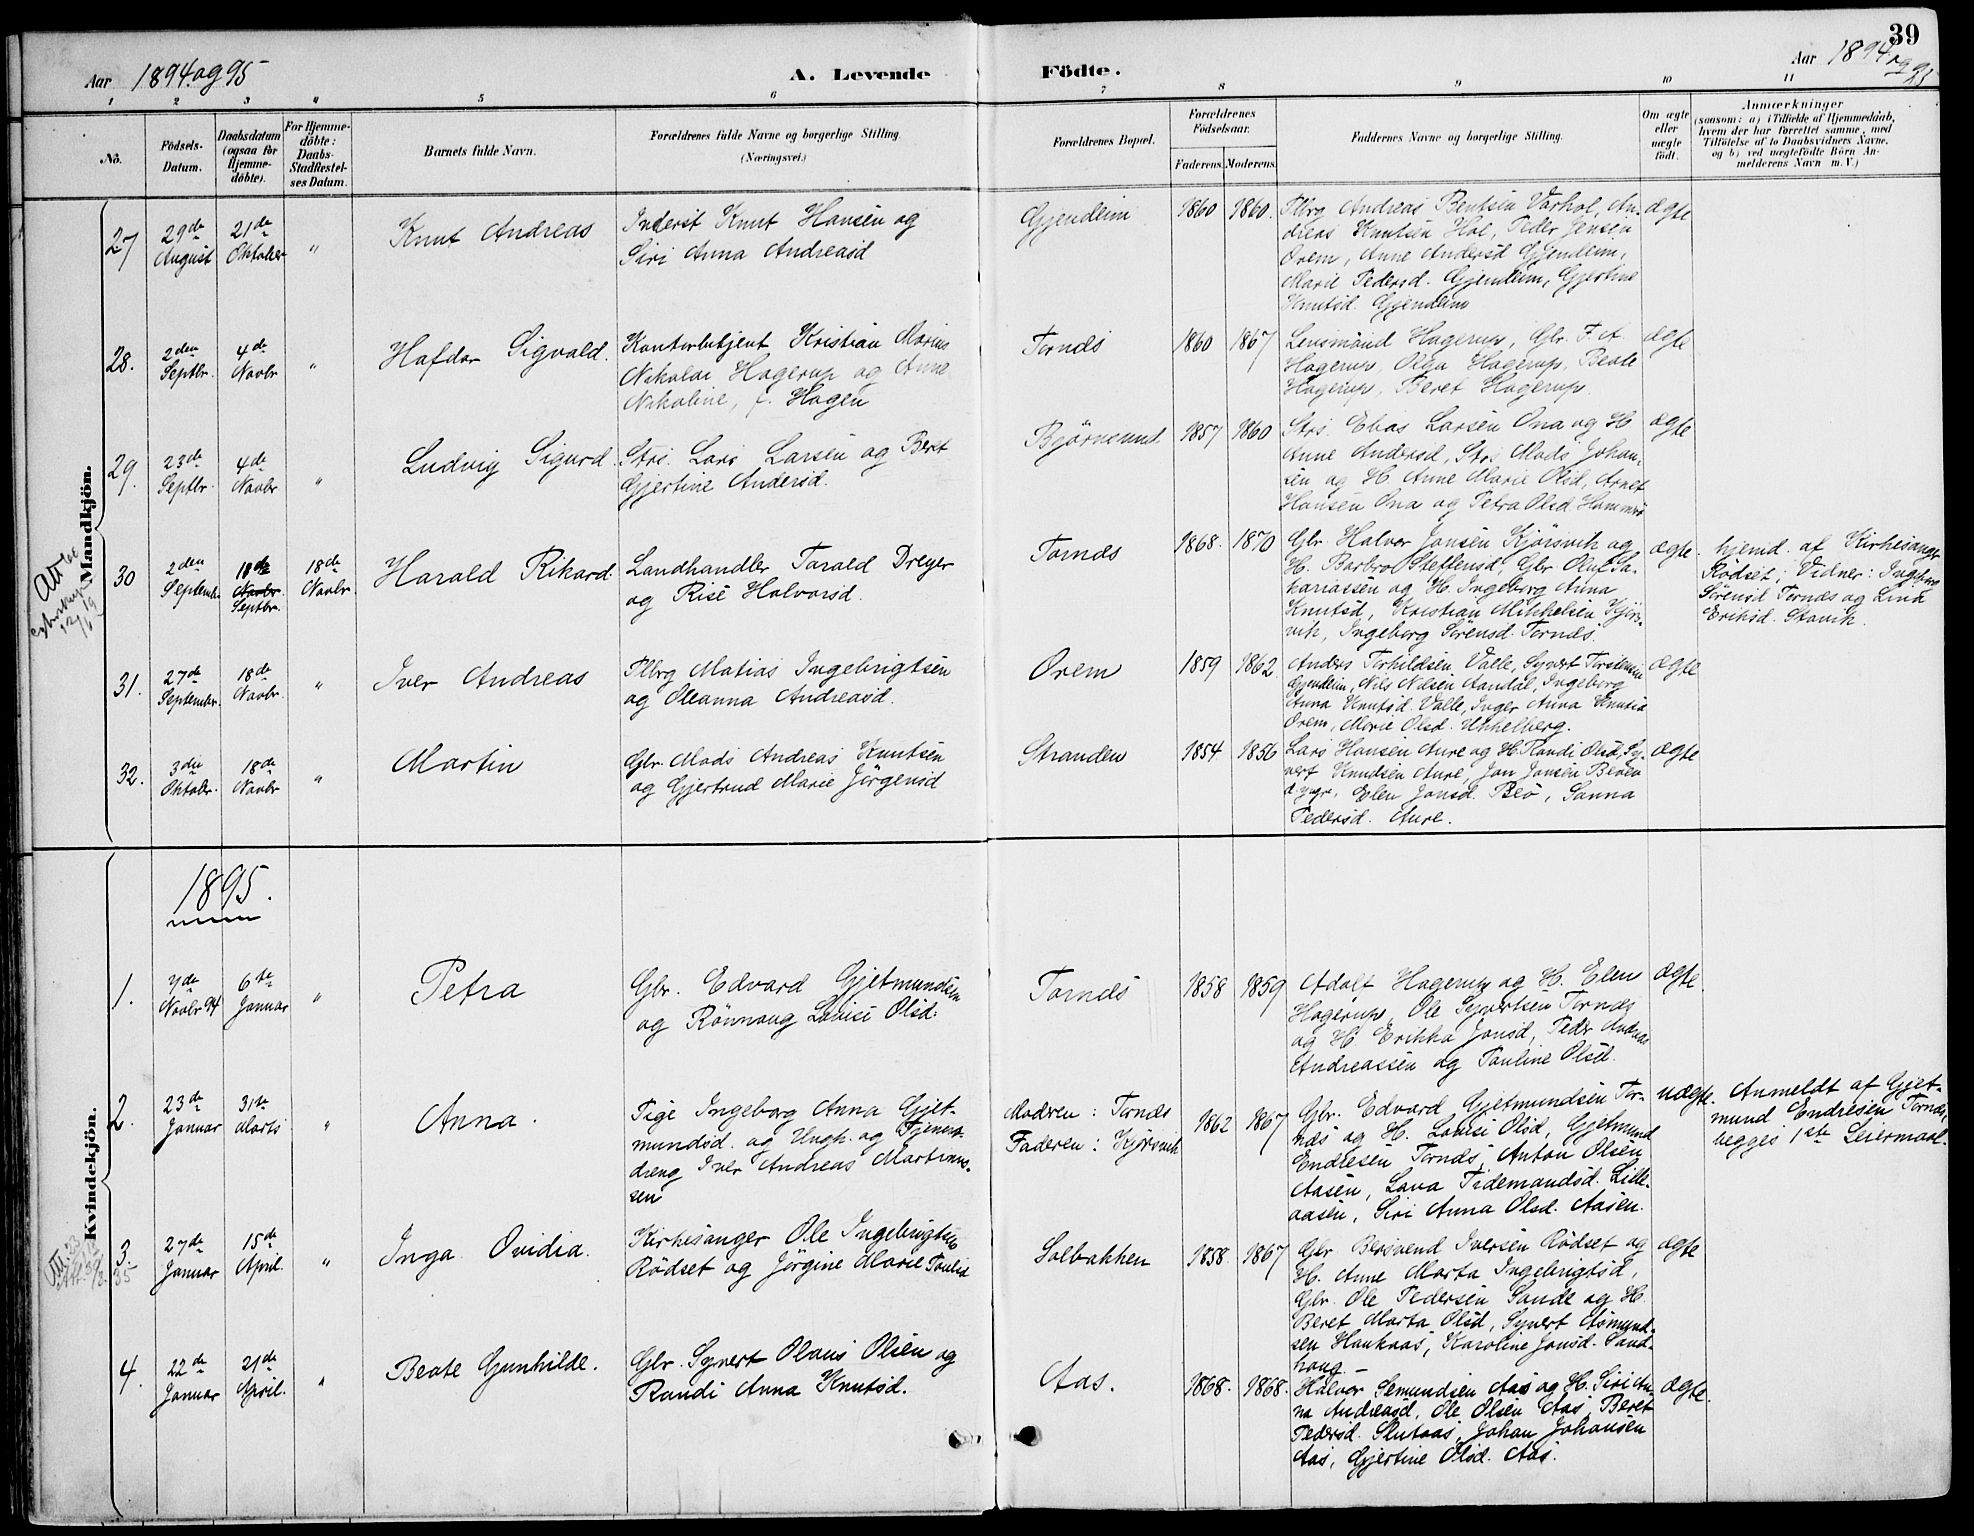 39
Aar 1894 og 95
A. Levende Födte.
Aar 1894 og 95
1 2 3 " 5 6 7 8 9 10 11
No.
Födsels-Datum.
Daabsdatum (ogsaa for Hjemme-döbte).
For Hjemme-döbte: Daabs-Stadfæstel-ses Datum.
Barnets fulde Navn.
Forældrenes fulde Navne og borgerlige Stilling (Næringsvei.)
Forældrenes Bopæl.
Forældrenes Födselsaar.
Faderens. Moderens.
Faddernes Navne og borgerlige Stilling.
Om ægte eller uægte födt.
Anmærkninger
(saasom: a) i Tilfælde af Hjemmedaab,
hvem der har forrettet samme, med
Tilföielse af to Daabsvidners Navne,
og b) ved uægtefödte Börn An-
melderens Navn m. V.)
Mandkjön.
27 29de August 21de Oktober " Knut Andreas
Inderst Knut Hansen og
Siri Anna Andreasd
Gjendeim 1860 1860.
Flbrg Andreas Bentsen Varhol, An-
dreas Knutsen Hol, Peder Jensen
Orem, Anne Andersd Gjendeim,
Marie Pedersd. Gjendeim, Gjertine
Knutsd. Gjendeim
ægte
28. 2den Septbr. 4de Novbr " Hafdor Sigvald.
Kontorbetjent Kristian Marius
Nikolai Hagerup og Anne
Nikoline, f. Hagen
Tornes 1860 1867
Lensmand Hagerup, Gbr. F. A.
Hagerup, Olga Hagerup, Beate
Hagerup, Beret Hagerup.
ægte
29. 23de Septbr. 4de Novbr " Ludvig Sigurd.
Strs. Lars Larsen og Beret
Gjertine Andersd.
Björnsund. 1857 1860
Strs. Elias Larsen Ona og H.
Anne Andersd, Strs Mads Johan-
sen og H. Anne Marie Olsd, Arnet
Hansen Ona og Petra Olsd. Hammerö
ægte
30 2den September 18de Novbr Septbr. 18de Novbr. Harald Rikard
Landhandler Tarald Dreyer
og Rise Halvorsd.
Tornes 1868. 1870
Gbr. Halvor Jonsen Kjörsvik og
H. Barbro Steffensd, Gbr. Oluf Sa-
kariassen og H. Ingeborg Anna
Knutsd, Kristian Mikkelsen Kjörs-
vik, Ingeborg Sörensd. Tornes.
ægte.
hjemd. af Kirkesanger
Rödset; Vidner: Ingeborg
Sörensd Tornes og Lina
Eriksd. Stavik.
31. 27de September. 18de Novbr. " Iver Andreas
Flbrg Matias Ingebrigtsen
og Oleanna Andreasd.
Orem 1859 1862
Anders Torkildsen Valle, Syvert Torstensen
Gjendeim, Nils Nilsen Aandal, Ingeborg
Anna Knutsd. Valle, Inger Anna Knutsd
Orem, Marie Olsd. Unhelberg.
ægte
32. 3die Oktober. 18de Novbr " Martin
Gbr. Mads Andreas Knutsen
og Gjertrud Marie Jörgensd
Stranden 1854 1856
Lars Hansen Aure og H. Randi Olsd, Sy-
vert Knudsen Aure, Jon Jonsen Beöen
d. yngr. Elen Jonsd. Beö, Sanna
Pedersd. Aure.
ægte
1895.
Kvindekjön.
1. 7de Novbr 94 6te Januar " Petra
Gbr. Edvard Gjetmundsen
og Rönnaug Lovise Olsd.
Tornes 1858 1859
Adolf Hagerup og H. Elen
Hagerup, Ole Syvertsen Tornes
og H. Erikka Jonsd, Peder Andreas
Andreassen og Pauline Olsd.
ægte
2. 23de Januar 31te Marts " Anna.
Pige Ingeborg Anna Gjet-
mundsd. og Ungk. og Tjeneste-
dreng Iver Andreas Martinus-
sen
Modren: Tornes
Faderen: Kjörsvik
1862 1867
Gbr. Edvard Gjetmundsen Tor-
nes og H. Lovise Olsd, Gjetmund
Endresen Tornes, Anton Olsen
Aasen, Lava Tidemandsd. Lille-
aasen, Siri Anna Olsd. Aasen.
uægte.
Anmeldt af Gjet-
mund Endresen Tornes,
begges 1ste Leiermaal.
3. 27de Januar 15de April. " Inga Ovidia.
Kirkesanger Ole Ingebrigtsen
Rödset og Jörgine Marie Paulsd
Solbakken 1858. 1867
Gbr Berivend Iversen Rödset og
H. Anne Marta Ingebrigtsd,
Gbr. Ole Pedersen Sande og H.
Beret Marta Olsd, Syvert Asmund-
sen Haukaas, Karoline Jonsd. Sand-
haug.
ægte
4. 22de Januar 21de April. " Beate Gunhilde.
Gbr. Syvert Olaus Olsen og
Randi Anna Knutsd.
Aas. 1868. 1868.
Halvor Semundsen Aas og H. Siri An-
na Andreasd, Ole Olsen Aas, Beret
Pedersd. Slutaas, Johan Johansen
Aas, Gjertine Olsd. Aas.
ægte.